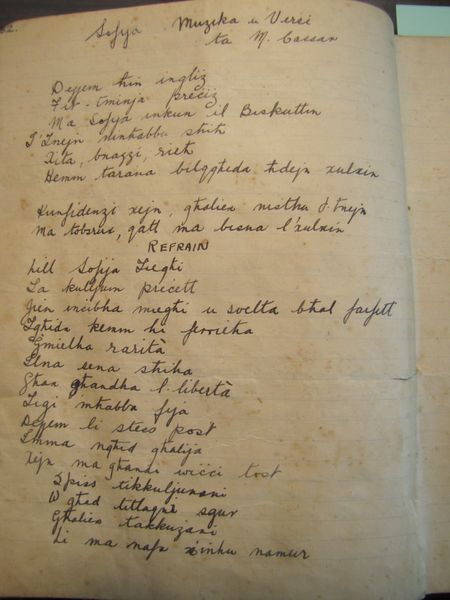 Sofija Muzika u Versi
ta M. Cassar
Dejjem hin ingliz
Fit-tminja preciz
Ma Sofija inkun il Biskuttin
T'Tnejn minhabbu shih
Xita, bnazzi, rieh
Hemm tarana bilqgheda hdejn xulxin
Kunfidenzi xejn, ghaliex nisthu t-tnejn
ma tobsrux, qatt ma bisna l'xulxin
REFRAIN
hill Sofija Tieghi
La kulljum pricett
Jien incibha mieghi u svelta bhal farfett
Tghida kemm hi fervieha
Gmielha rarità
Ilna sena shiha
Ghax ghandha l-libertà
Tigi mhabba fija
Dejjem li stess post
Imma nghid ghalija
Xejn ma ghandi wicci tost
Spiss tikkuljunani
U ghed titlaqni sgur
Ghaliex takkuzani
Li ma nafx xinhu namur